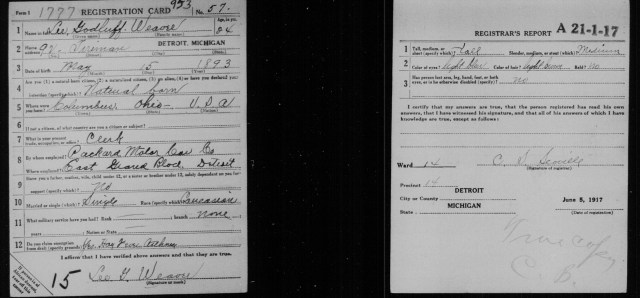 Form 1 1777 REGISTRATION CARD 953 No. 57
Age, in yrs.
1 Name in full Lee Godluff Weaver 24
(Given name) (Family name)
2 Home address 92 DETROIT, MICHIGAN
3 Date of birth May 15 1893
(Month) (Day) (Year)
4 Are you (1) a natural born citizen, (2) a naturalized citizen, (3) an alien, (4) or have you declared your
intention (specify which)? Natural born
5 Where were you born? Columbus, Ohio - USA
6 If not a citizen, of what country are you a citizen or subject?
7 What is your present trade, occupation, or office? Clerk
8 By whom employed? Packard Motor Car Co
Where employed? East Grand Blvd. Detroit
9 Have you a father, mother, wife, child under 12, or a sister or brother under 12, solely dependent on you for
support (specify which)? No
10 Married or single (which)? Single Race (specify which)? Caucasian
11 What military service have you had? Rank branch none
years Nation or State
12 Do you claim exemption from draft (specify grounds)?
I affirm that I have verified above answers and that they are true.
15 Lee G. Weaver
(Signature or mark)
REGISTRAR'S REPORT A 21-1-17
1 Tall, medium, or short (specify which)? Tall Slender, medium, or stout (which)? Medium
2 Color of eyes? Light Blue Color of hair? Light Brown Bald? No
3 Has person lost arm, leg, hand, foot, or both
eyes, or is he otherwise disabled (specify)? no
I certify that my answers are true, that the person registered has read his own
answers, that I have witnessed his signature, and that all of his answers of which I have
knowledge are true, except as follows:
(Signature of registrar)
Ward 14
Precinct 14
City or County DETROIT
State MICHIGAN
June 5, 1917
(Date of registration)